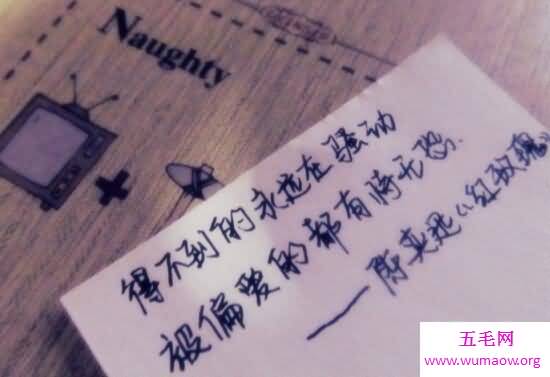 Naughty
得不到的永远在骚动
被偏爱的都有恃无恐.
——陈奕迅《红玫瑰》
五毛网
www.wumaow.org